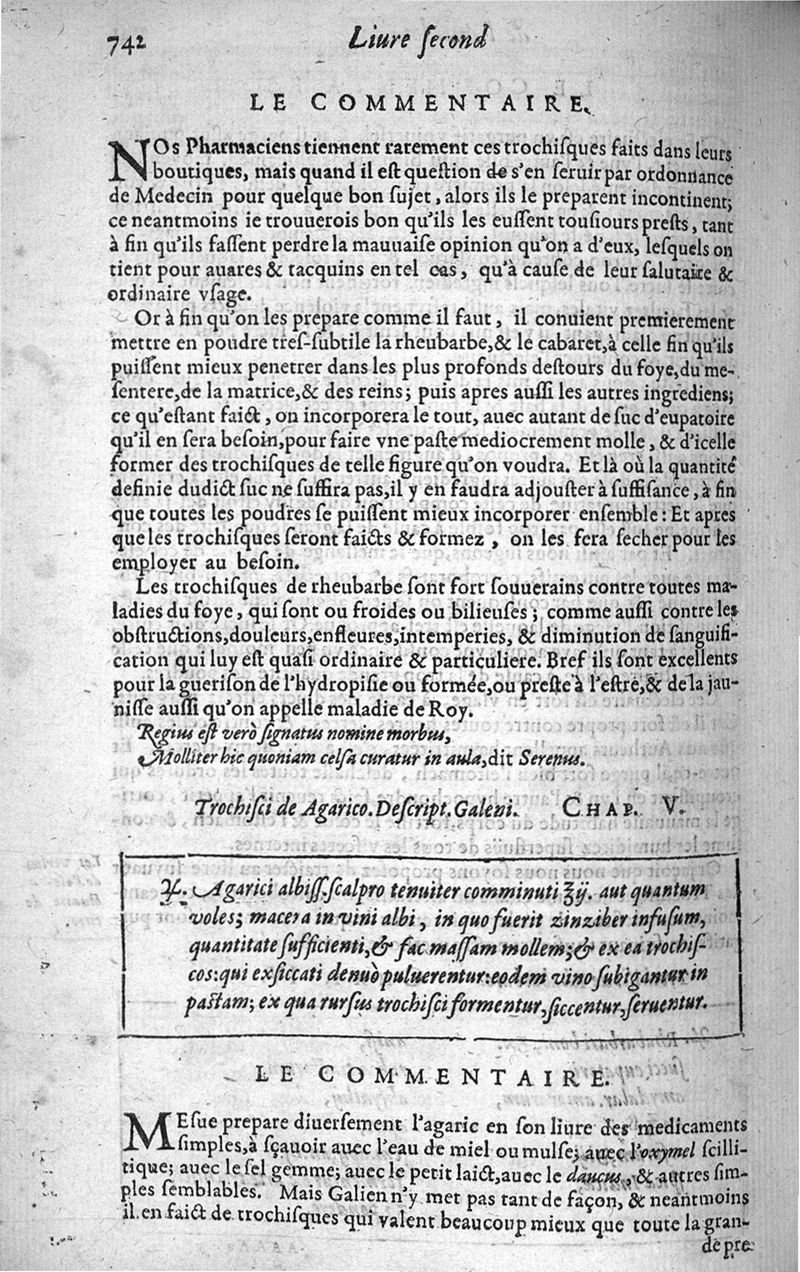 742 Liure ſecond
LE COMMENTAIRE.
NOs Pharmaciens tiennent rarement ces trochiſques faits dans leurs
boutiques, mais quand il eſt queſtion de s'en ſeruir par ordonnance
de Medecin pour quelque bon ſujet, alors ils le preparent incontinent;
ce neantmoins ie trouuerois bon qu'ils les euſſent touſiours preſts, tant
à fin qu'ils faſſent perdre la mauuaiſe opinion qu'on a d'eux, leſquels on
tient pour auares & tacquins en tel cas, qu'à cauſe de leur ſalutaire &
ordinaire vſage.
Or à fin qu'on les prepare comme il faut, il conuient premierement
mettre en poudre treſ-ſubtile la rheubarbe, & le cabaret, à celle fin qu'ils
puiſſent mieux penetrer dans les plus profonds deſtours du foye, du me-
ſentere, de la matrice, & des reins; puis apres auſſi les autres ingrediens;
ce qu'eſtant faict, on incorporera le tout, auec autant de ſuc d'eupatoire
qu'il en ſera beſoin, pour faire vne paſte mediocrement molle, & d'icelle
former des trochiſques de telle figure qu'on voudra. Et là où la quantité
definie dudict ſuc ne ſuffira pas, il y en faudra adjouſter à ſuffiſance, à fin
que toutes les poudres ſe puiſſent mieux incorporer enſemble: Et apres
que les trochiſques ſeront faicts & formez, on les fera ſecher pour les
employer au beſoin.
Les trochiſques de rheubarbe ſont fort ſouuerains contre toutes ma-
ladies du foye, qui ſont ou froides ou bilieuſes; comme auſſi contre les
obſtructions, douleurs, enfleures, intemperies, & diminution de ſanguifi-
cation qui luy eſt quaſi ordinaire & particuliere. Bref ils ſont excellents
pour la gueriſon de l'hydropiſie ou formée, ou preſte à l'eſtre, & de la jau-
niſſe auſſi qu'on appelle maladie de Roy.
Regius eſt verò ſignatus nomine morbus,
Molliter hic quoniam celſa curatur in aula, dit Serenus.
Trochiſci de Agarico. Deſcript. Galeni. CHAP. V.
℞. Agarici albiſſ. ſcalpro tenuiter comminuti ℥ij. aut quantum
voles; macera in vini albi, in quo fuerit zinziber infuſum,
quantitate ſufficienti, & fac maſſam mollem; & ex ea trochiſ-
cos: qui exſiccati denuò puluerentur: eodem vino ſubigantur in
paſtam; ex qua rurſus trochiſci formentur, ſiccentur, ſeruentur.
LE COMMENTAIRE.
MEſue prepare diuerſement l'agaric en ſon liure des medicaments
ſimples, à ſçauoir auec l'eau de miel ou mulſe; auec l'oxymel ſcilli-
tique; auec le ſel gemme; auec le petit laict, auec le daucus, & autres ſim-
ples ſemblables. Mais Galien n'y met pas tant de façon, & neantmoins
il en faict de trochiſques qui valent beaucoup mieux que toute la gran-
de pre